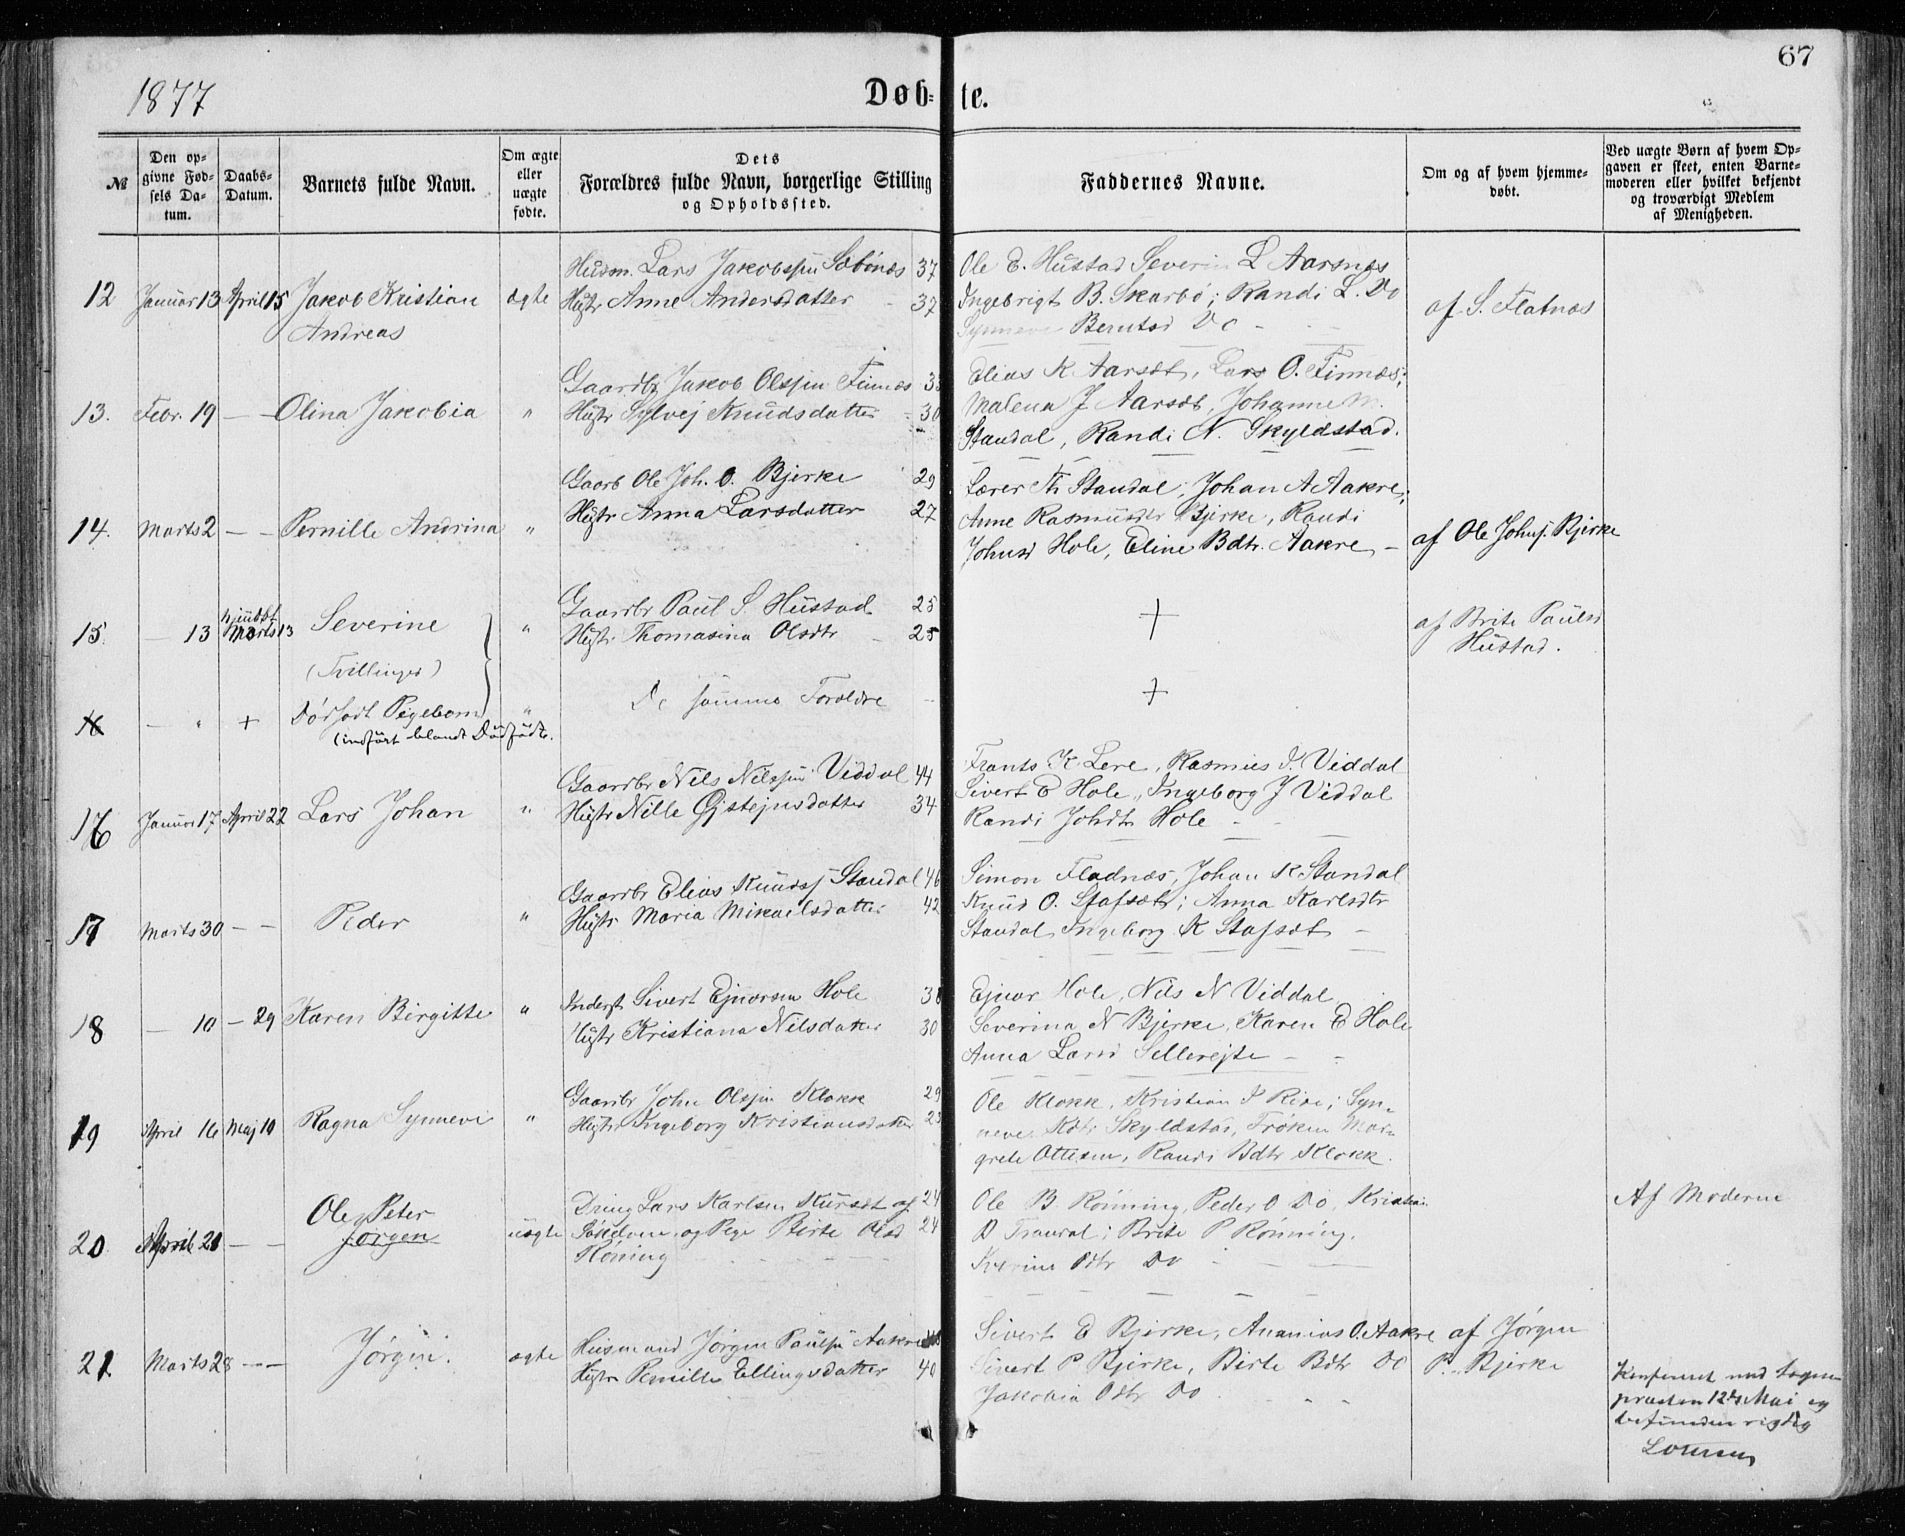 67
1877
Døb-te.
№
Den opgivne Fødsels Datum.
Daabs-Datum.
Barnets fulde Navn.
Om ægte eller uægte fødte.
Dets Forældres fulde Navn, borgerlige Stilling og Opholdssted.
Faddernes Navne.
Om og af hvem hjemmedøbt.
Ved uægte Børn af hvem Opgaven er skeet, enten Barnemoderen eller hvilket bekjendt og troværdigt Medlem af Menigheden.
12 Januar 13 April 15 Jakob Kristian Andreas ægte
Husm. Lars Jakobssen Sæbönæs 37
Hustr Anne Andersdatter - 37
Ole E. Hustad Severin L Aarsnæs
Ingebrigt B. Skarbö; Randi L. Do
Synneve Berntsd Do - -
af S. Flatnæs
13. Febr. 19 - - Olina Jakobia "
Gaardbr Jakob Olssen Finnes 33
Hustr Sylvej Knudsdatter - 30
Elias K Aarsæt, Lars O. Finnæs;
Malena J Aarsæt, Johanne M.
Standal, Randi N. Skyldstad.
14. Marts 2 - - Pernille Andrina "
Gaarb Ole Joh. O. Bjerke 29
Hustr Anna Larsdatter 27
Lærer Th Standal; Johan A Aakre;
Anne Rasmusdtr Bjerke, Randi
Johnsd Hole, Eline Bdtr. Aakre -
af Ole Johnss. Bjerke
15. - 13 hjmdbt Marts 13 Severine "
(Tvillinger)
Gaardbr Paul S. Hustad 25
Hustr. Thomasina Olsdtr - 25
+
af Brite Paulsd
Hustad.
16 - " + Dödfödt Pigebarn "
(indført blandt Dødfødte.
De samme Forældre -
+
16 Januar 17 April 22 Lars Johan "
Gaardbr Nils Nilssen Viddal 44
Hustr Nille Øjstejnsdatter 34
Frants K Lere, Rasmus I. Viddal
Sivert E Hole, Ingeborg J Viddal
Randi Johdtr Hole - -
17 Marts 30 - - Peder "
Gaardbr Elias Knudss Standal 46
Hustr Maria Mikaelsdatter 42
Simon Fladnæs, Johan K Standal
Knud O. Stafsæt; Anna Karlsdtr
Standal, Ingeborg K Stafsæt -
18 - 10 - 29 Karen Birgitte "
Inderst Sivert Ejnarsen Hole 38
Hustr Kristiana Nilsdatter 30
Ejnar Hole, Nils N Viddal
Severina N Bjerke, Karen E Hole
Anna Larsd Sellerejte - -
19 April 16 Maj 10 Ragna Synnevi "
Gaardbr John Olssen Klokk 29
Hustr Ingeborg Kristiansdatter 23
Ole Klokk, Kristian P Rise; Syn-
neve Kdtr Skyldstad, Frøken Mar-
grete Ottesen, Randi Bdtr Klokk.
20. April 21 - - Ole Peter
Jørgen uægte
Dreng Lars Karlsen Kursæt af 24
og Pige Birte Olsd 24
Röning
Ole B. Rönning, Peder O Do, Kristian
D Trandal; Brite P Rönning.
Do
Af Moderen
21. Marts 28 - - Jørgen. ægte
Husmand Jørgen Paulsen Aakre
Hustr Pernille Ellingsdatter 40
Sivert E Bjerke, Ananias O. Aakre
Sivert P Bjerke, Birte Bdtr Do
Jakobia Odtr Do - -
af Jørgen
P. Bjerke
Konfereret med Sogne-
præsten 12te Mai og
befunden rigtig